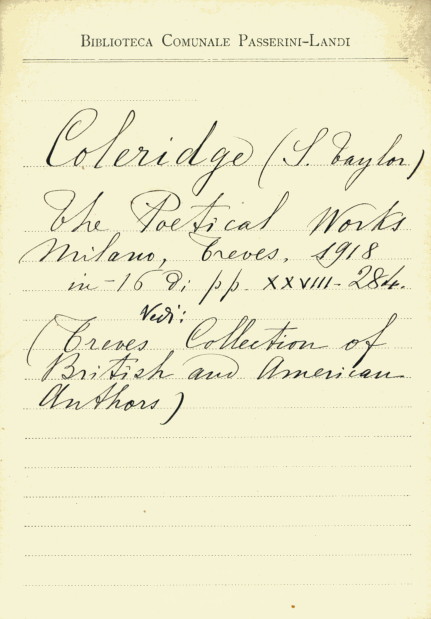 BIBLIOTECA COMUNALE PASSERINI-LANDI
Coleridge (S. Taylor)
The Poetical Works
Milano, Treves, 1918
in-16 di pp. XXVIII-284.
Vedi:
(Treves Collection of
British and American
Authors)